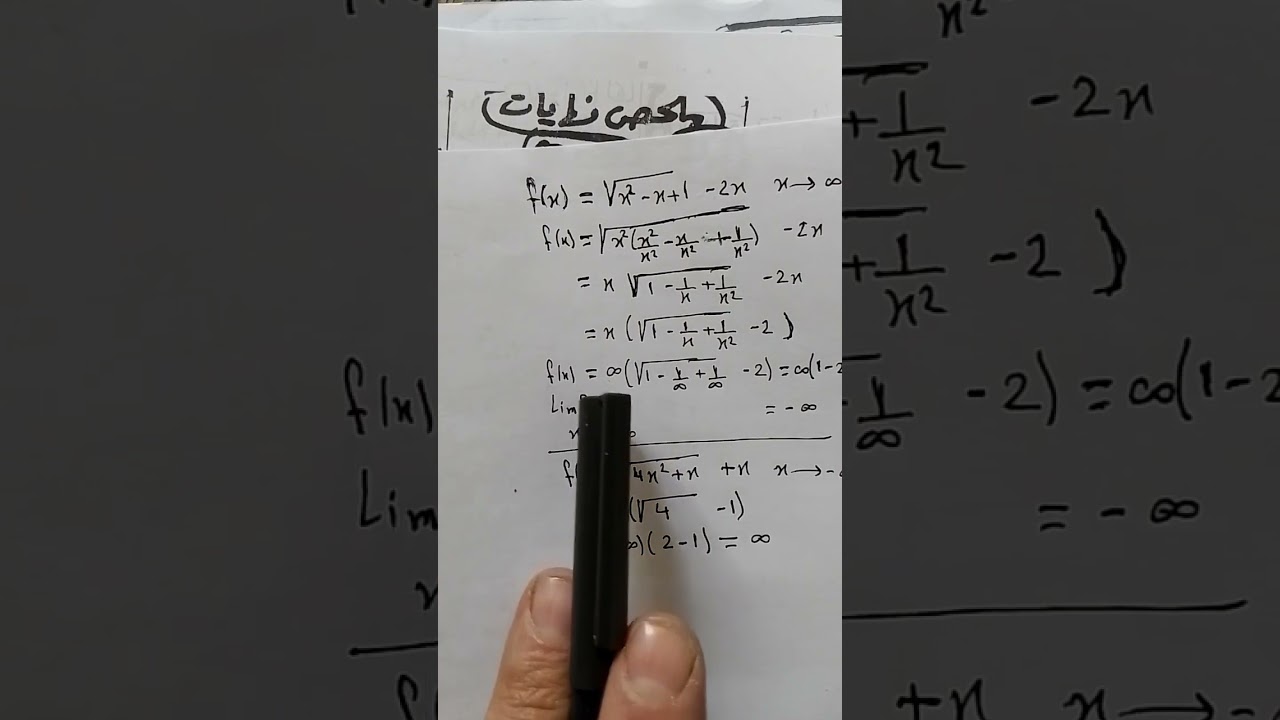 (ملخص نهايات)
f(x) = √x² - x + 1 - 2x x → ∞
f(x) = √x²(x²/x² - x/x² + 1/x²) - 2x
= x √1 - 1/x + 1/x² - 2x
= x (√1 - 1/x + 1/x² - 2)
f(x) = ∞(√1 - 1/∞ + 1/∞ - 2) = ∞(1 - 2
Lim = - ∞
x ∞
f( 4x² + x + x x → -
(√4 - 1)
∞)(2 - 1) = ∞